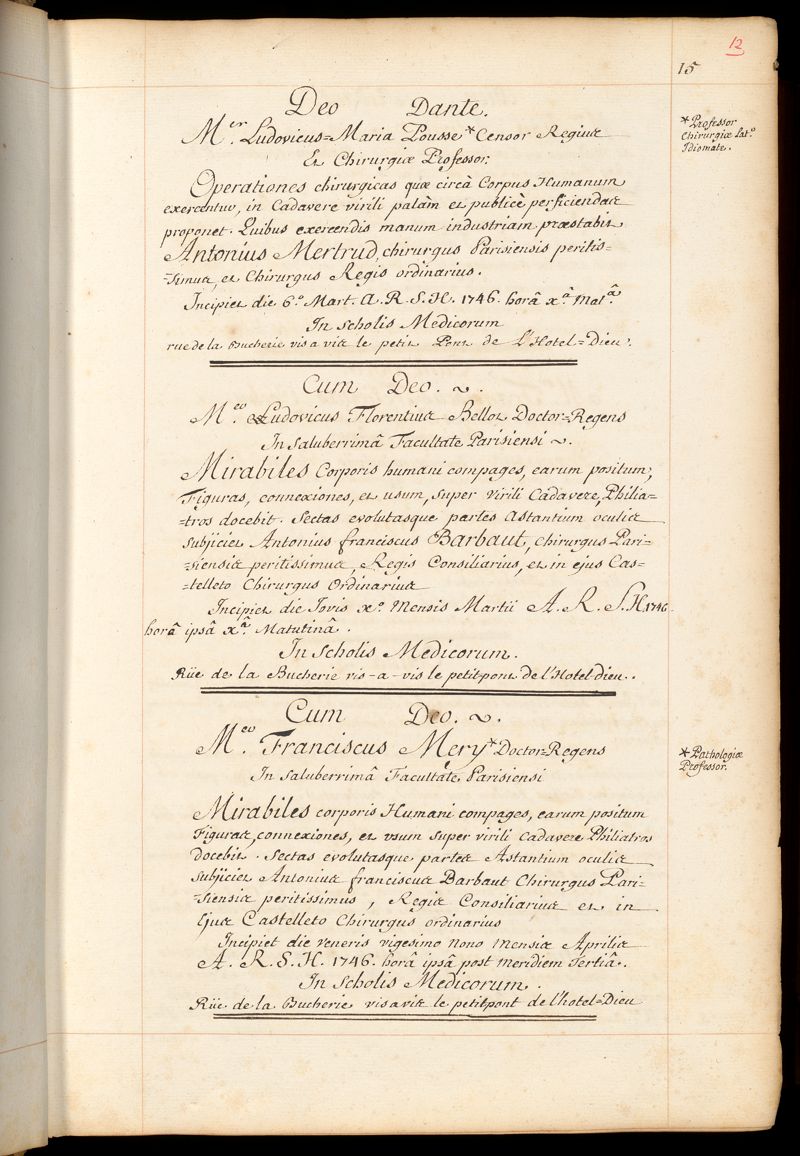 12
15
Deo Dante.
M.er Ludovicus=Maria Pousse * Censor Regius
Et Chirurgiæ Professor.
Operationes chirurgicas quæ circà Corpus Humanum
exercentur, in Cadavere virili palàm et publicè perficiendas
proponet. Quibus exercendis manum industriam præstabit
Antonius Mertrud, chirurgus Parisiensis peritis=
=simus, et Chirurgus Regis ordinarius.
Incipiet die 6.º Mart. A. R. S. H. 1746. horâ x.â Mat.â
In Scholis Medicorum
rue de la Bucherie vis a vis le petit Pont de L'Hotel=Dieu.
* Professor
Chirurgiæ Lat.º
Idiomate.
Cum Deo. ~.
M.er Ludovicus Florentius Bellot Doctor=Regens
In Saluberrimâ Facultate Parisiensi ~.
Mirabiles Corporis humani compages, earum positum,
Figuras, connexiones, et usum, super virili Cadavere, Philia=
=tros docebit. Sectas evolutasque partes astantium oculis
subjiciet Antonius franciscus Barbaut, chirurgus Pari=
=siensis peritissimus, Regis Consiliarius, et in ejus Cas=
=telleto Chirurgus Ordinarius
Incipiet die Jovis x.º Mensis Martii A. R. S. H 1746
horâ ipsâ x.â Matutinâ.
In Scholis Medicorum.
Rüe de la Bucherie vis-a-vis le petit pont de l'Hotel dieu..
Cum Deo. ~.
M.er Franciscus Mery * Doctor=Regens
In Saluberrimâ Facultate Parisiensi
* Pathologiæ
Professor.
Mirabiles corporis Humani compages, earum positum
Figuras, connexiones, et usum super virili Cadavere Philiatros
docebit. Sectas evolutasque partes Astantium oculis
subjiciet Antonius franciscus Barbaut Chirurgus Pari=
=siensis peritissimus, Regis Consiliarius et in
Ejus Castelleto Chirurgus ordinarius
Incipiet die Veneris vigesimo nono mensis Aprilis
A. R. S. H. 1746. horâ ipsâ post meridiem Tertiâ..
In Scholis Medicorum.
Rüe de la Bucherie vis a vis le petit pont de l'hotel=Dieu